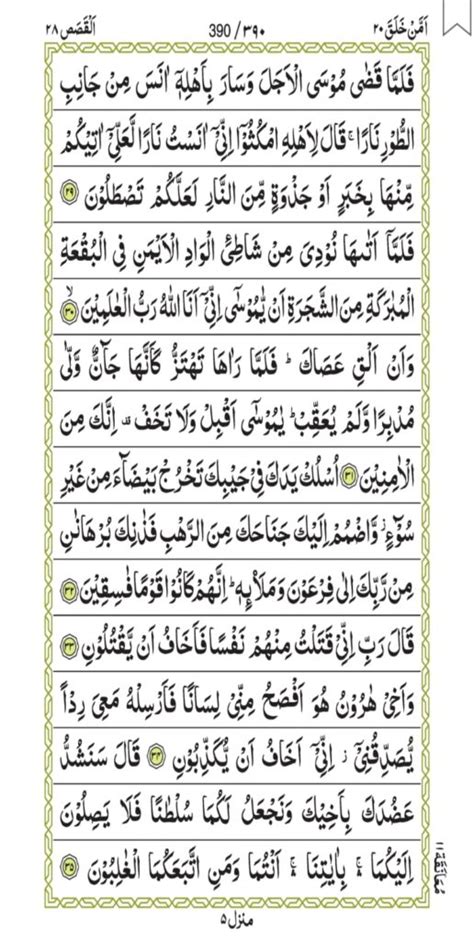 اَمَّنْ خَلَقَ ٢٠ 390 / ٣٩٠ اَلْقَصَص ٢٨
فَلَمَّا قَضٰى مُوْسَى الْاَجَلَ وَسَارَ بِاَهْلِهٖۤ اٰنَسَ مِنْ جَانِبِ
الطُّوْرِ نَارًا ۚ قَالَ لِاَهْلِهِ امْكُثُوْۤا اِنِّیْۤ اٰنَسْتُ نَارًا لَّعَلِّیْۤ اٰتِیْكُمْ
مِّنْهَا بِخَبَرٍ اَوْ جَذْوَةٍ مِّنَ النَّارِ لَعَلَّكُمْ تَصْطَلُوْنَ ٢٩
فَلَمَّاۤ اَتٰىهَا نُوْدِیَ مِنْ شَاطِئِ الْوَادِ الْاَیْمَنِ فِی الْبُقْعَةِ
الْمُبٰرَكَةِ مِنَ الشَّجَرَةِ اَنْ یّٰمُوْسٰۤى اِنِّیْۤ اَنَا اللّٰهُ رَبُّ الْعٰلَمِیْنَ ۙ ٣٠
وَاَنْ اَلْقِ عَصَاكَ ؕ فَلَمَّا رَاٰهَا تَهْتَزُّ كَاَنَّهَا جَآنٌّ وَّلّٰى
مُدْبِرًا وَّلَمْ یُعَقِّبْ ؕ یٰمُوْسٰۤى اَقْبِلْ وَلَا تَخَفْ ۫ اِنَّكَ مِنَ
الْاٰمِنِیْنَ ٣١ اُسْلُكْ یَدَكَ فِیْ جَیْبِكَ تَخْرُجْ بَیْضَآءَ مِنْ غَیْرِ
سُوْٓءٍ ؗ وَّاضْمُمْ اِلَیْكَ جَنَاحَكَ مِنَ الرَّهْبِ فَذٰنِكَ بُرْهَانٰنِ
مِنْ رَّبِّكَ اِلٰى فِرْعَوْنَ وَمَلَا۟ىِٕهٖ ؕ اِنَّهُمْ كَانُوْا قَوْمًا فٰسِقِیْنَ ٣٢
قَالَ رَبِّ اِنِّیْ قَتَلْتُ مِنْهُمْ نَفْسًا فَاَخَافُ اَنْ یَّقْتُلُوْنِ ٣٣
وَاَخِیْ هٰرُوْنُ هُوَ اَفْصَحُ مِنِّیْ لِسَانًا فَاَرْسِلْهُ مَعِیَ رِدْاً
یُّصَدِّقُنِیْۤ ؗ اِنِّیْۤ اَخَافُ اَنْ یُّكَذِّبُوْنِ ٣٤ قَالَ سَنَشُدُّ
عَضُدَكَ بِاَخِیْكَ وَنَجْعَلُ لَكُمَا سُلْطٰنًا فَلَا یَصِلُوْنَ
اِلَیْكُمَا ۛۚ بِاٰیٰتِنَاۤ ۛۚ اَنْتُمَا وَمَنِ اتَّبَعَكُمَا الْغٰلِبُوْنَ ٣٥
مُعَانَقَة ١١
منزل ٥